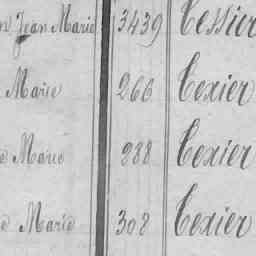 n Jean Marie 3439 Tessier
Marie 266 Texier
e Marie 288 Texier
e Marie 302 Texier